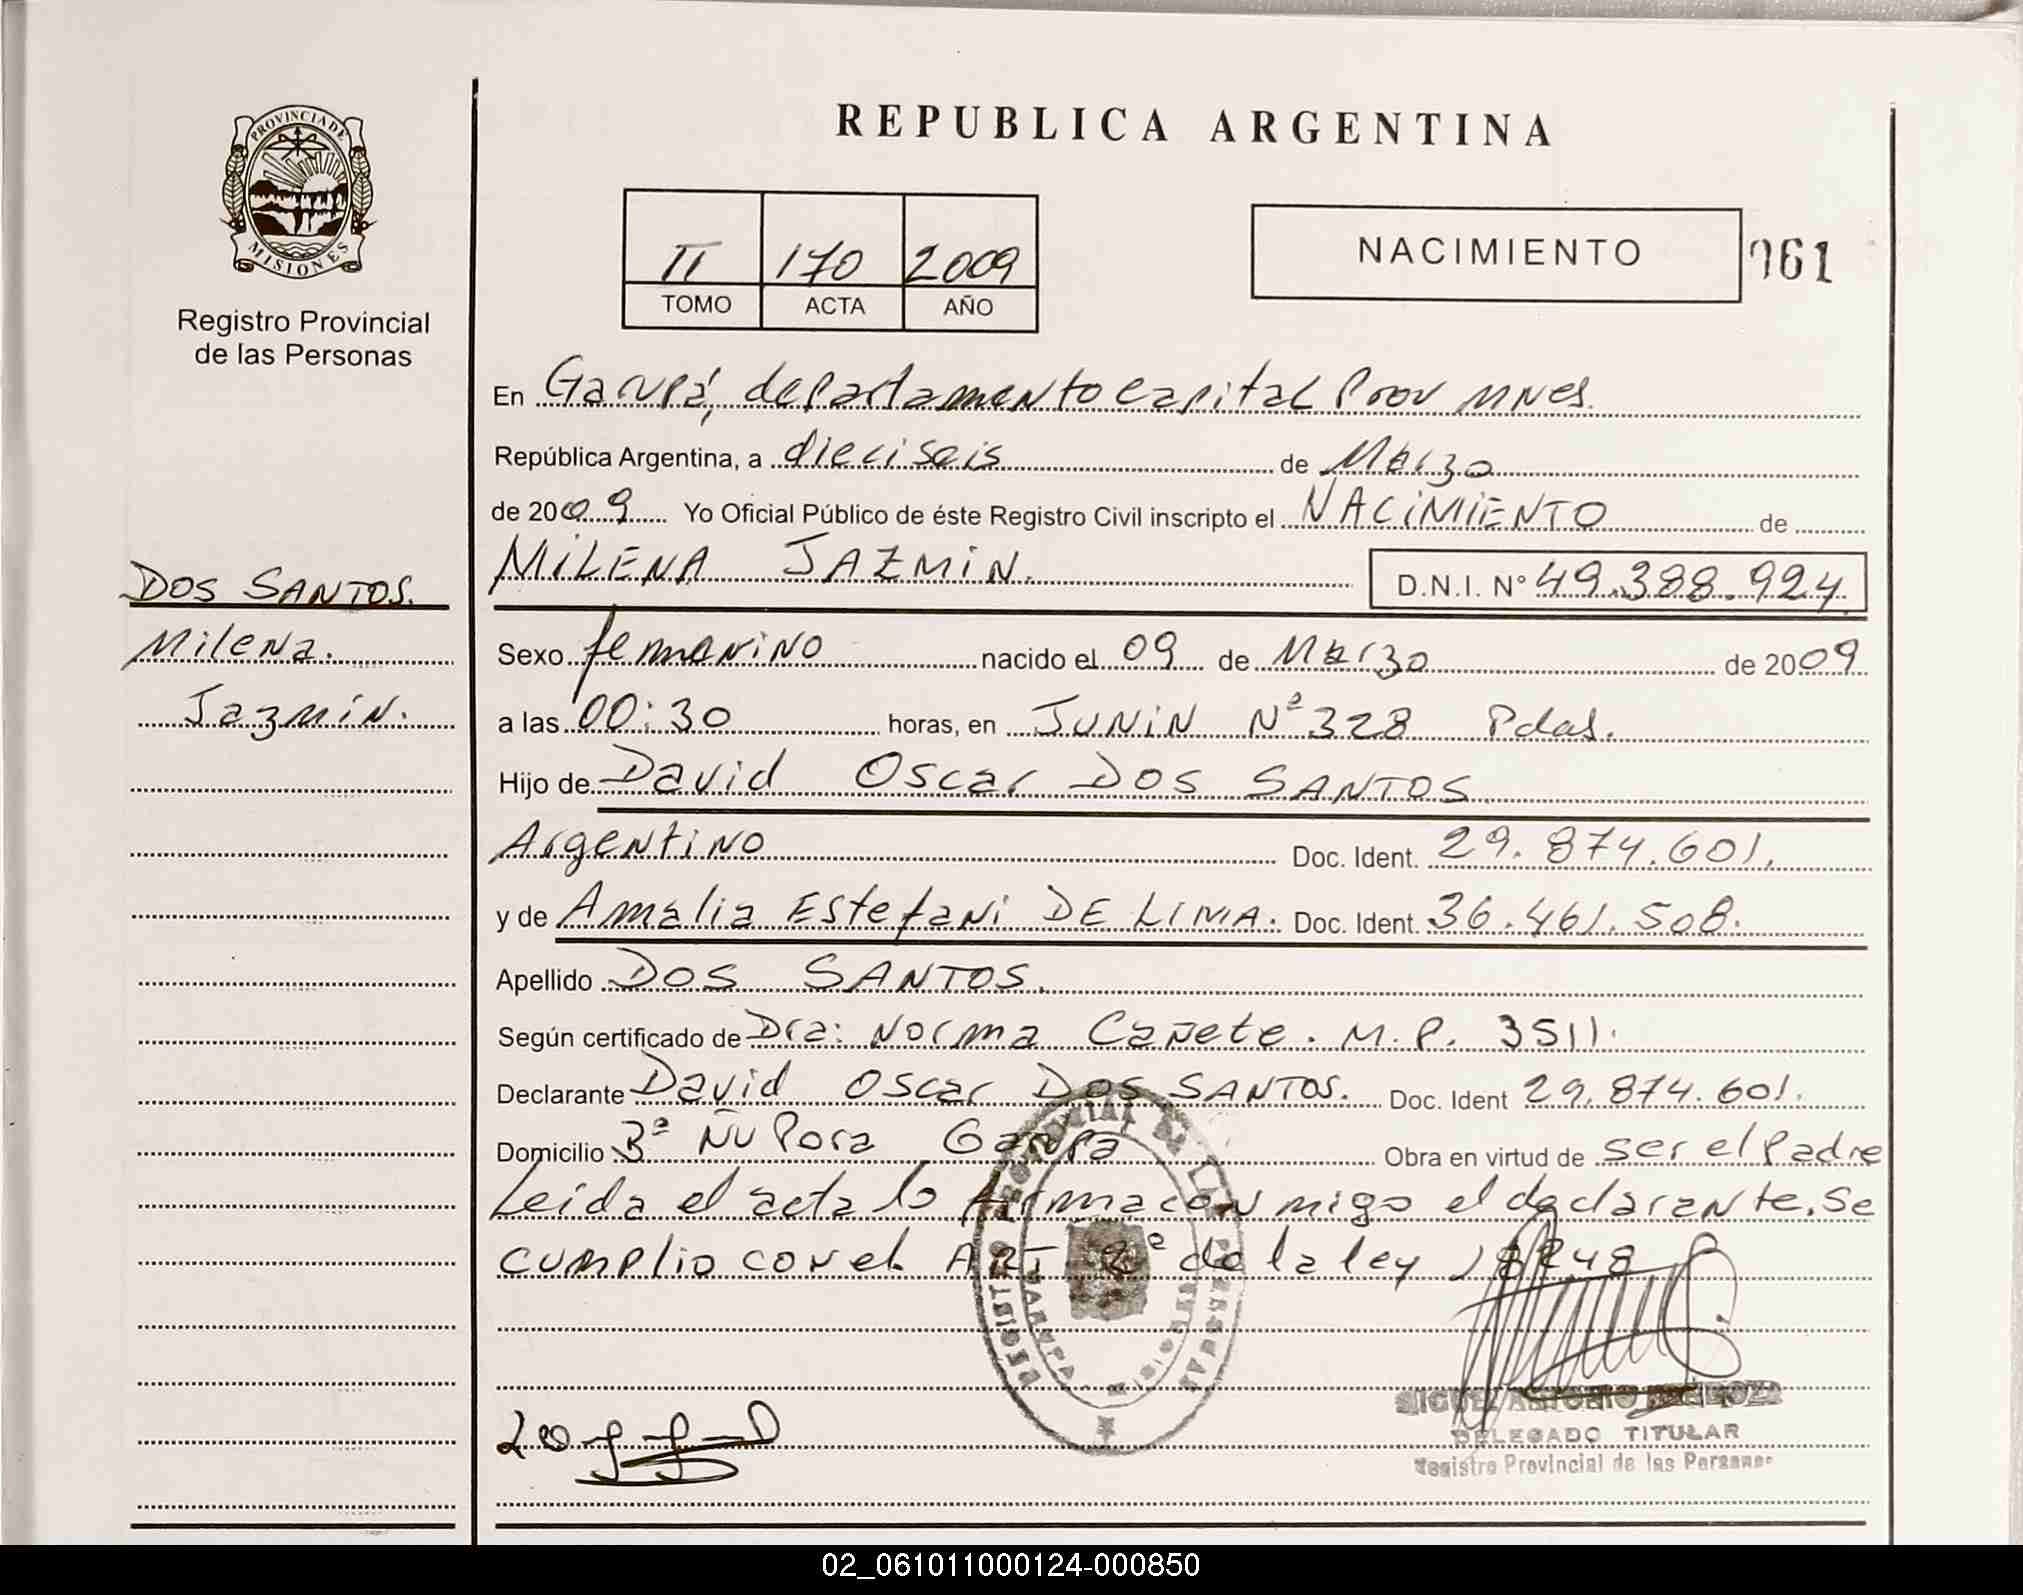 REPUBLICA ARGENTINA
PROVINCIA DE
MISIONES
Registro Provincial
de las Personas
II 170 2009
TOMO ACTA AÑO
NACIMIENTO
061
En Garupá, departamento capital Prov mnes.
República Argentina, a dieciseis de Marzo
de 2009 Yo Oficial Público de éste Registro Civil inscripto el NACIMIENTO de
MILENA JAZMIN. D.N.I. N° 49.388.924
DOS SANTOS.
Milena.
Jazmín.
Sexo femenino nacido el 09 de Marzo de 2009
a las 00:30 horas, en JUNIN Nº 328 Pdas.
Hijo de David Oscar DOS SANTOS
Argentino Doc. Ident. 29.874.601.
y de Amalia Estefani DE LIMA. Doc. Ident. 36.461.508.
Apellido DOS SANTOS.
Según certificado de Dra: Norma Cañete. M.P. 3511.
Declarante David Oscar DOS SANTOS. Doc. Ident 29.874.601.
Domicilio Bº Ñu Pora Garupa Obra en virtud de ser el Padre
Leida el acta lo firma conmigo el declarante. Se
cumplio con el ART 2º de la ley 18248
REGISTRO PROVINCIAL DE LAS PERSONAS
GARUPA
MIGUEL ANTONIO
DELEGADO TITULAR
Registro Provincial de las Personas
02_061011000124-000850